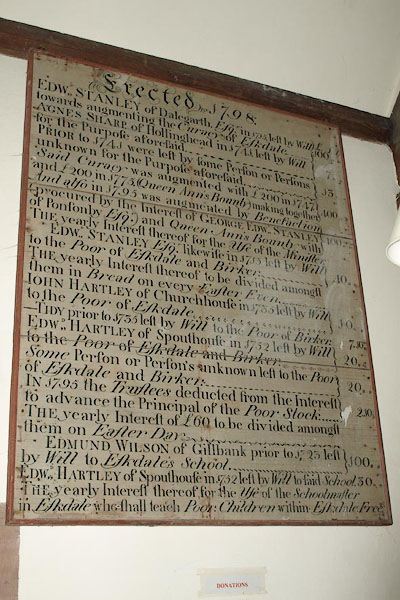 Erected 1798.
EDWD. STANLEY of Dalegarth, Esqr. in 1751 left by Will £
towards augmenting the Curacy of Eskdale 100
AGNES SHARP of Hollinghead in left by Will
for the Purpose aforesaid
PRIOR to 1743 were left by some Person or Persons
unknown for the Purpose aforesaid
Said Curacy was augmented with £200 in 174
and £200 in 1773, Queen Ann's Bounty making together 400
And also in 1793 was augmented by Benefaction
(procured by the Interest of GEORGE EDW. STANLEY
of Ponsonby Esqr.) and Queen Ann's Bounty with 400
THE yearly Interest thereof for the Use of the Minister
EDWD. STANLEY Esqr. likewise in 1751 left by Will
to the Poor of Eskdale and Birker 40
THE yearly Interest thereof to be divided amongst
them in Bread on every Easter Even.
JOHN HARTLEY of Churchhouse in 1735 left by Will
to the Poor of Eskdale
TIDY prior to 1735 left by Will to the Poor of Birker 7.10
EDWD. HARTLEY of Spouthouse in 1752 left by Will
to the Poor of Eskdale and Birker 20
Some Person or Person's unknown left to the Poor
of Eskdale and Birker 20
IN 1795 the Trustees deducted from the Interest
to advance the Principal of the Poor Stock 2.10
THE yearly Interest of £60 to be divided amongst
them on Easter Day.
EDMUND WILSON of Gillbank prior to 1723 left
by Will to Eskdale's School 100
EDWD. HARTLEY of Spouthouse in 1752 left by Will to said School 30
THE yearly Interest thereof for the Use of the Schoolmaster
in Eskdale who shall teach Poor Children within Eskdale Free
DONATIONS